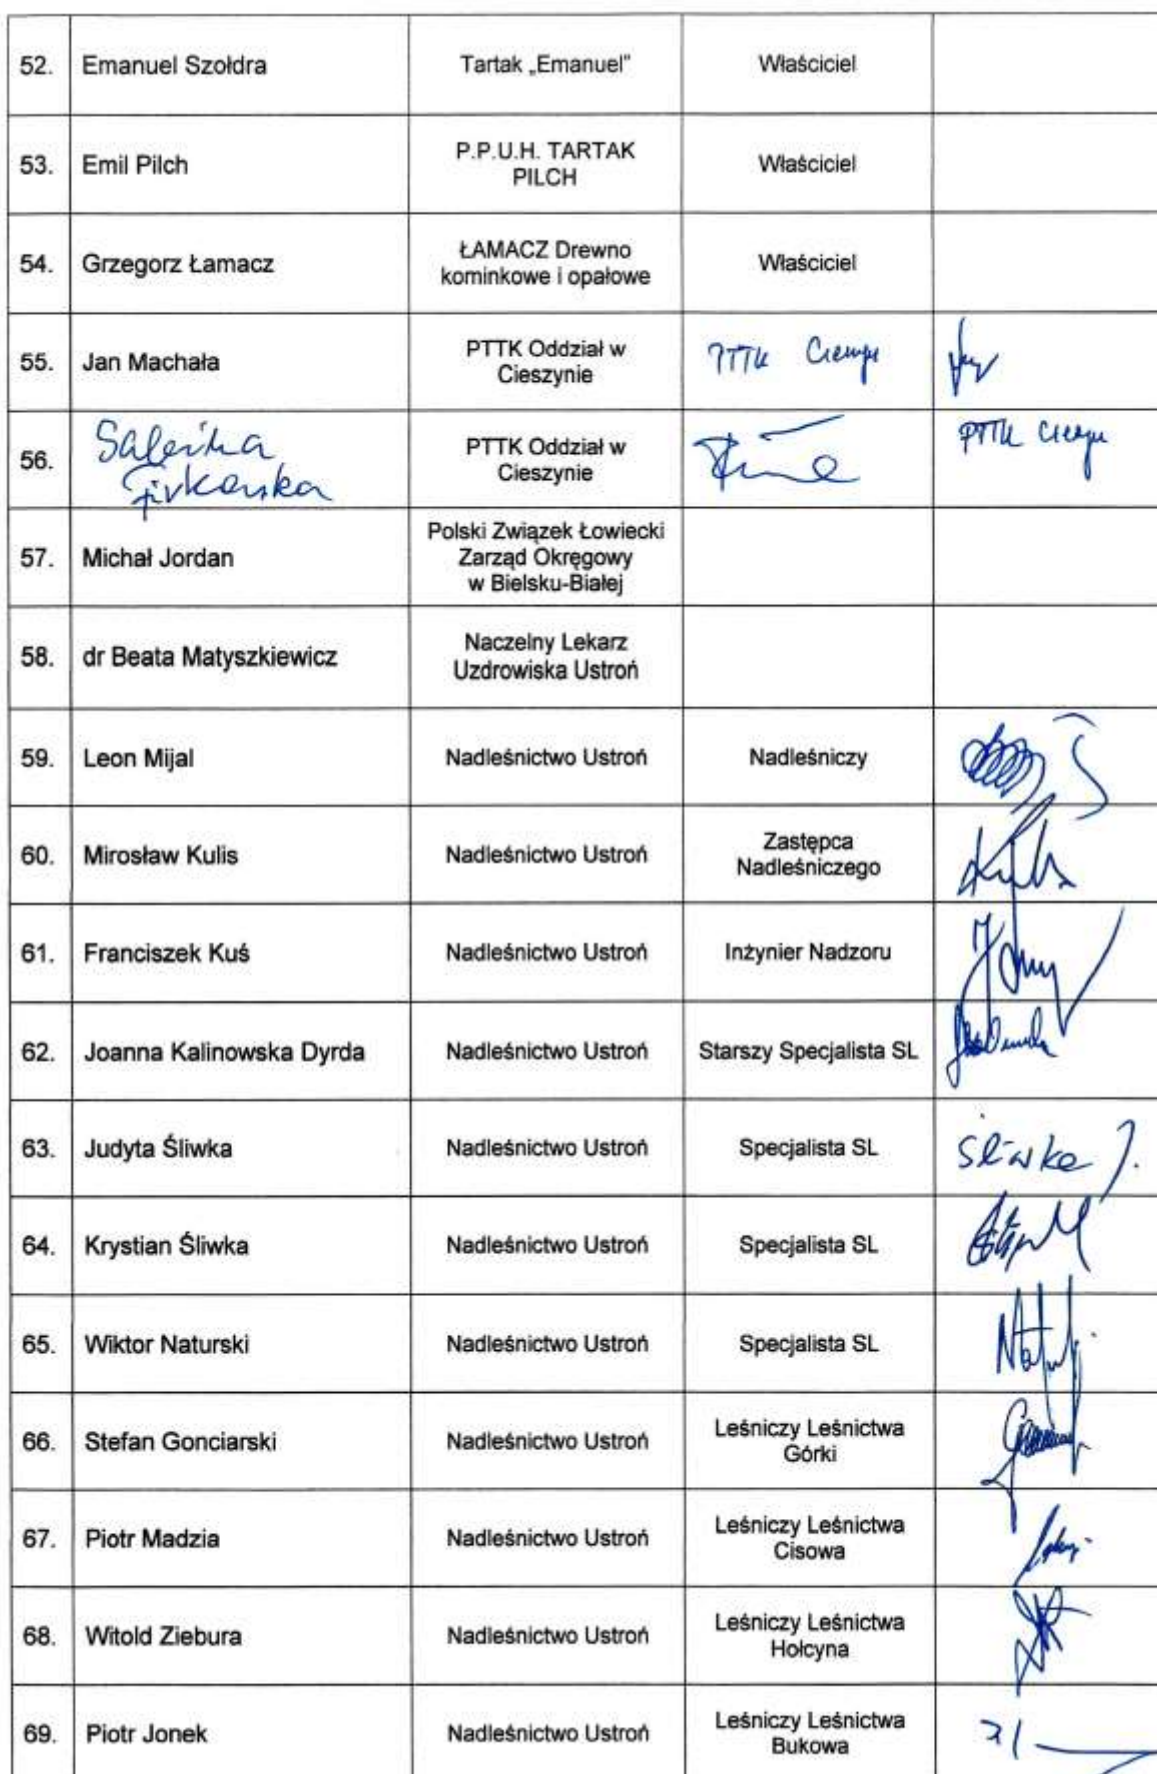 52. Emanuel Szołdra Tartak „Emanuel" Właściciel
53. Emil Pilch P.P.U.H. TARTAK PILCH Właściciel
54. Grzegorz Łamacz ŁAMACZ Drewno kominkowe i opałowe Właściciel
55. Jan Machała PTTK Oddział w Cieszynie PTTK
56. PTTK Oddział w Cieszynie PTTK
57. Michał Jordan Polski Związek Łowiecki Zarząd Okręgowy w Bielsku-Białej
58. dr Beata Matyszkiewicz Naczelny Lekarz Uzdrowiska Ustroń
59. Leon Mijal Nadleśnictwo Ustroń Nadleśniczy
60. Mirosław Kulis Nadleśnictwo Ustroń Zastępca Nadleśniczego
61. Franciszek Kuś Nadleśnictwo Ustroń Inżynier Nadzoru
62. Joanna Kalinowska Dyrda Nadleśnictwo Ustroń Starszy Specjalista SL
63. Judyta Śliwka Nadleśnictwo Ustroń Specjalista SL Śliwka J.
64. Krystian Śliwka Nadleśnictwo Ustroń Specjalista SL
65. Wiktor Naturski Nadleśnictwo Ustroń Specjalista SL
66. Stefan Gonciarski Nadleśnictwo Ustroń Leśniczy Leśnictwa Górki
67. Piotr Madzia Nadleśnictwo Ustroń Leśniczy Leśnictwa Cisowa
68. Witold Ziebura Nadleśnictwo Ustroń Leśniczy Leśnictwa Hołcyna
69. Piotr Jonek Nadleśnictwo Ustroń Leśniczy Leśnictwa Bukowa